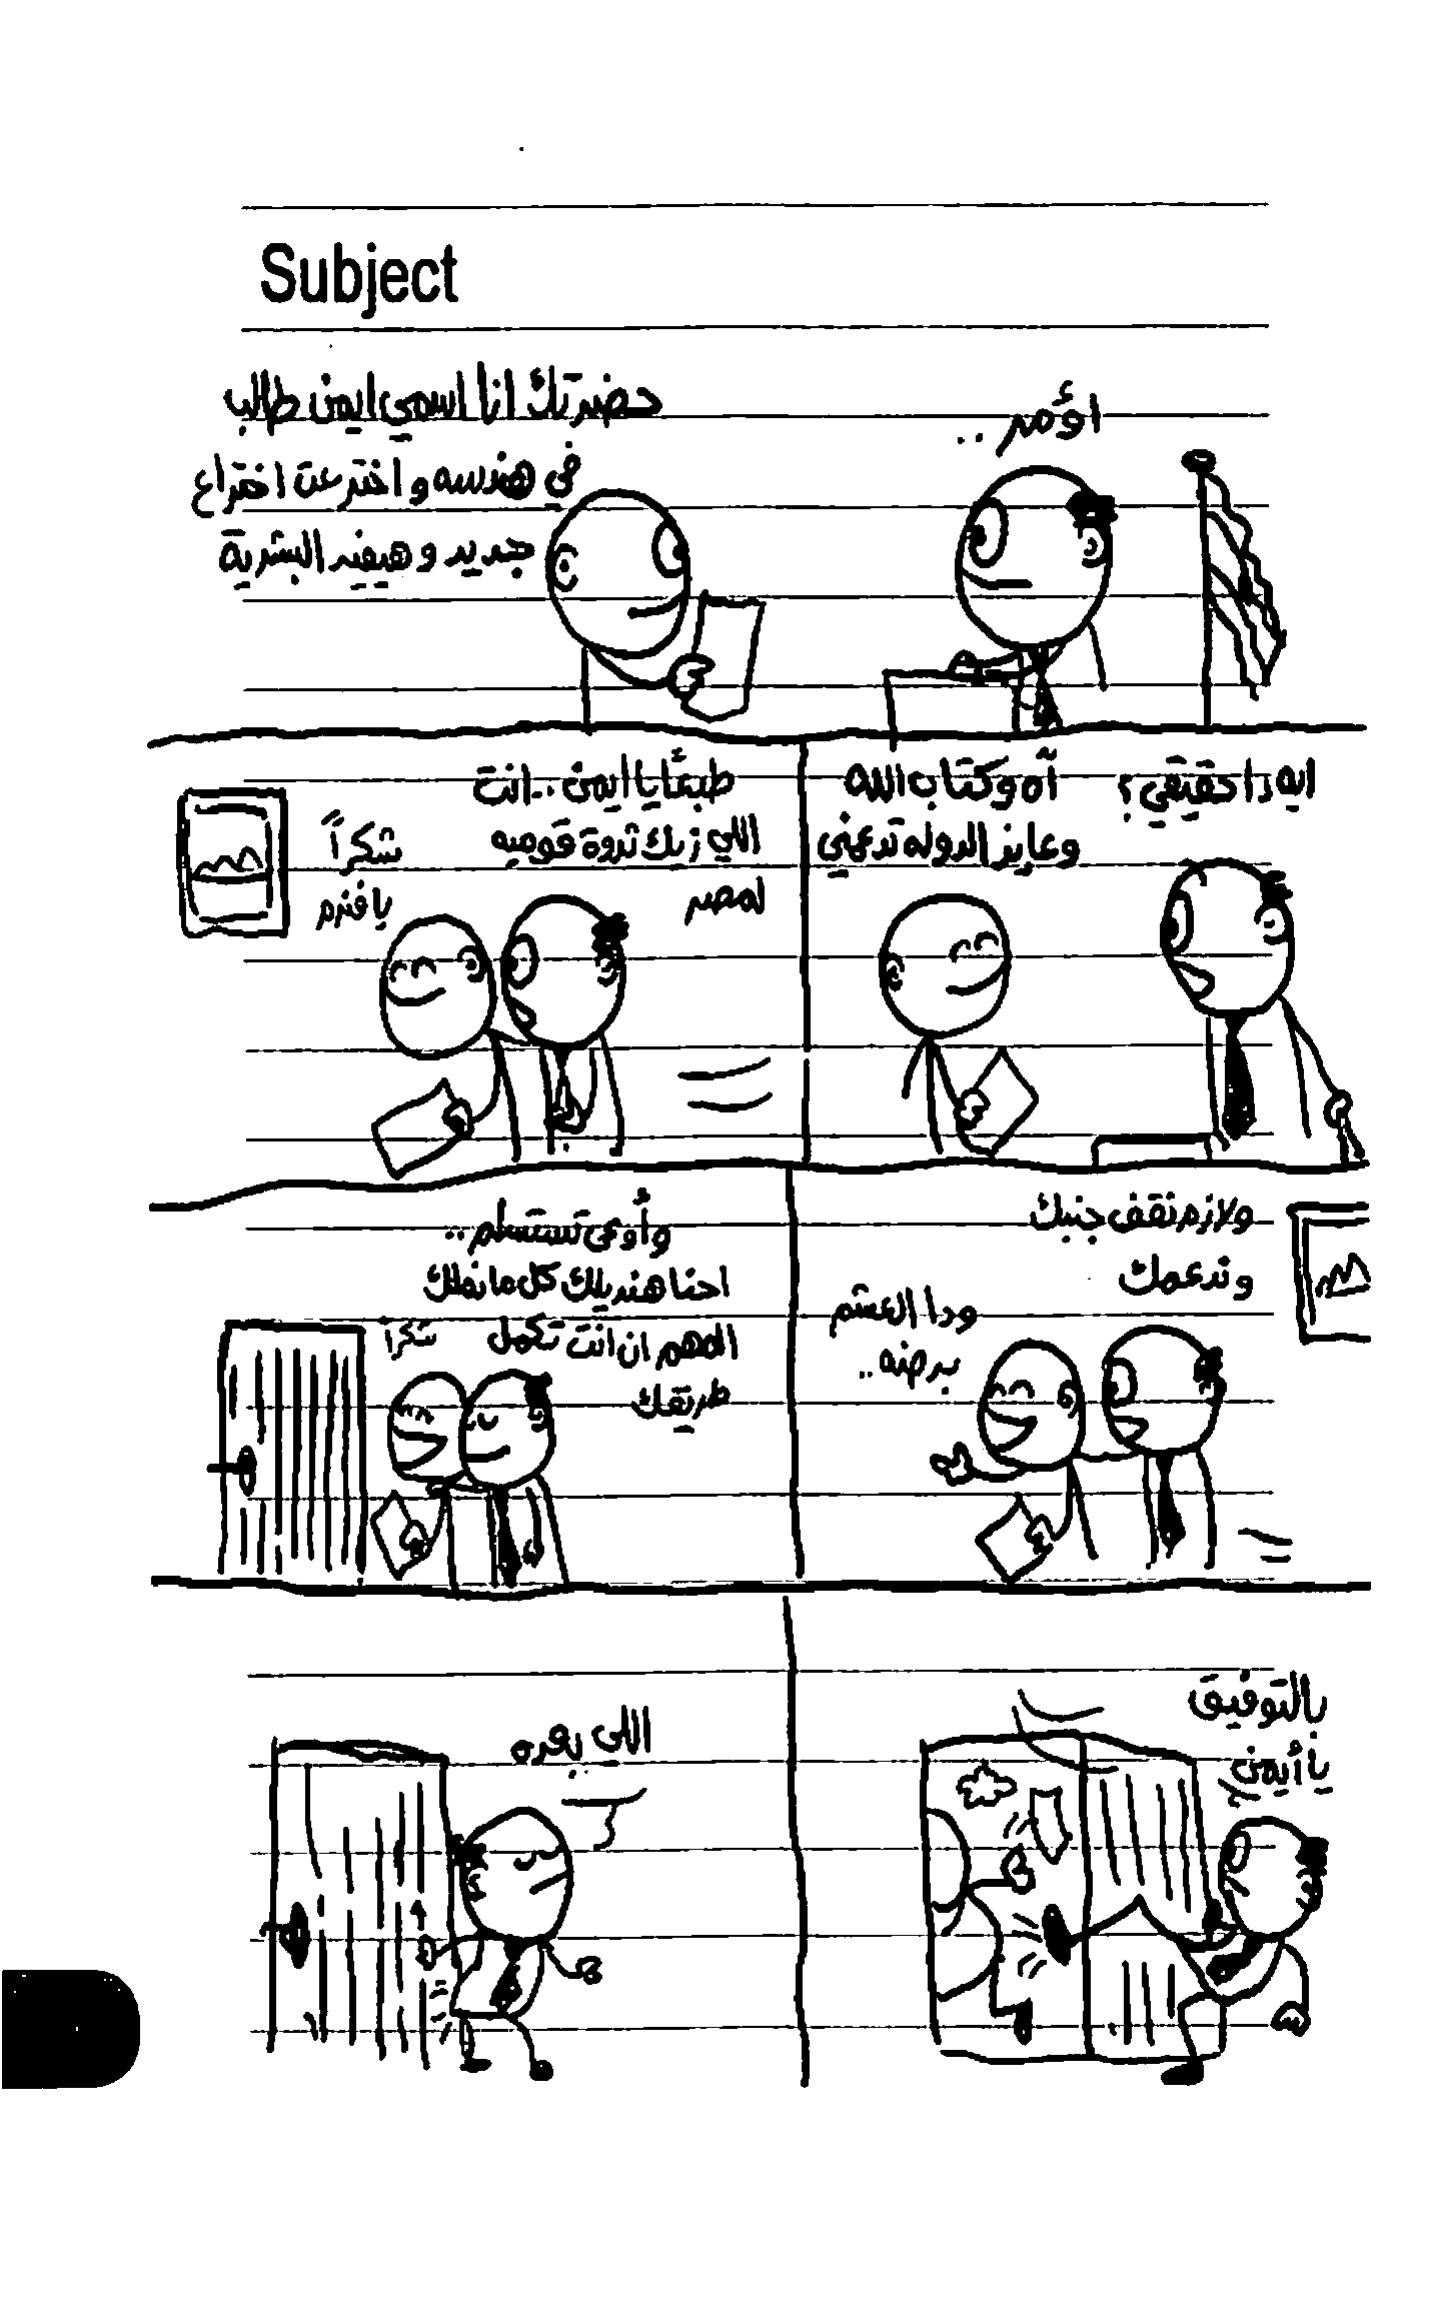 Subject
اؤمر..
حضرتك انا اسمي ايمن طالب
في هندسه و اخترعت اختراع
جديد و هيفيد البشرية
ايه دا حقيقي؟
آه وكتاب الله
وعايز الدوله تدعمني
طبعًا يا ايمن .. انت
اللي زيك ثروة قوميه
لمصر
شكراً
يا فندم
ولازم نقف جنبك
وندعمك
ودا العشم
برضه..
وأوعى تستسلم..
احنا هنديلك كل ما نملك
المهم ان انت تكمل
طريقك
شكراً
بالتوفيق
يا أيمن
اللي بعده